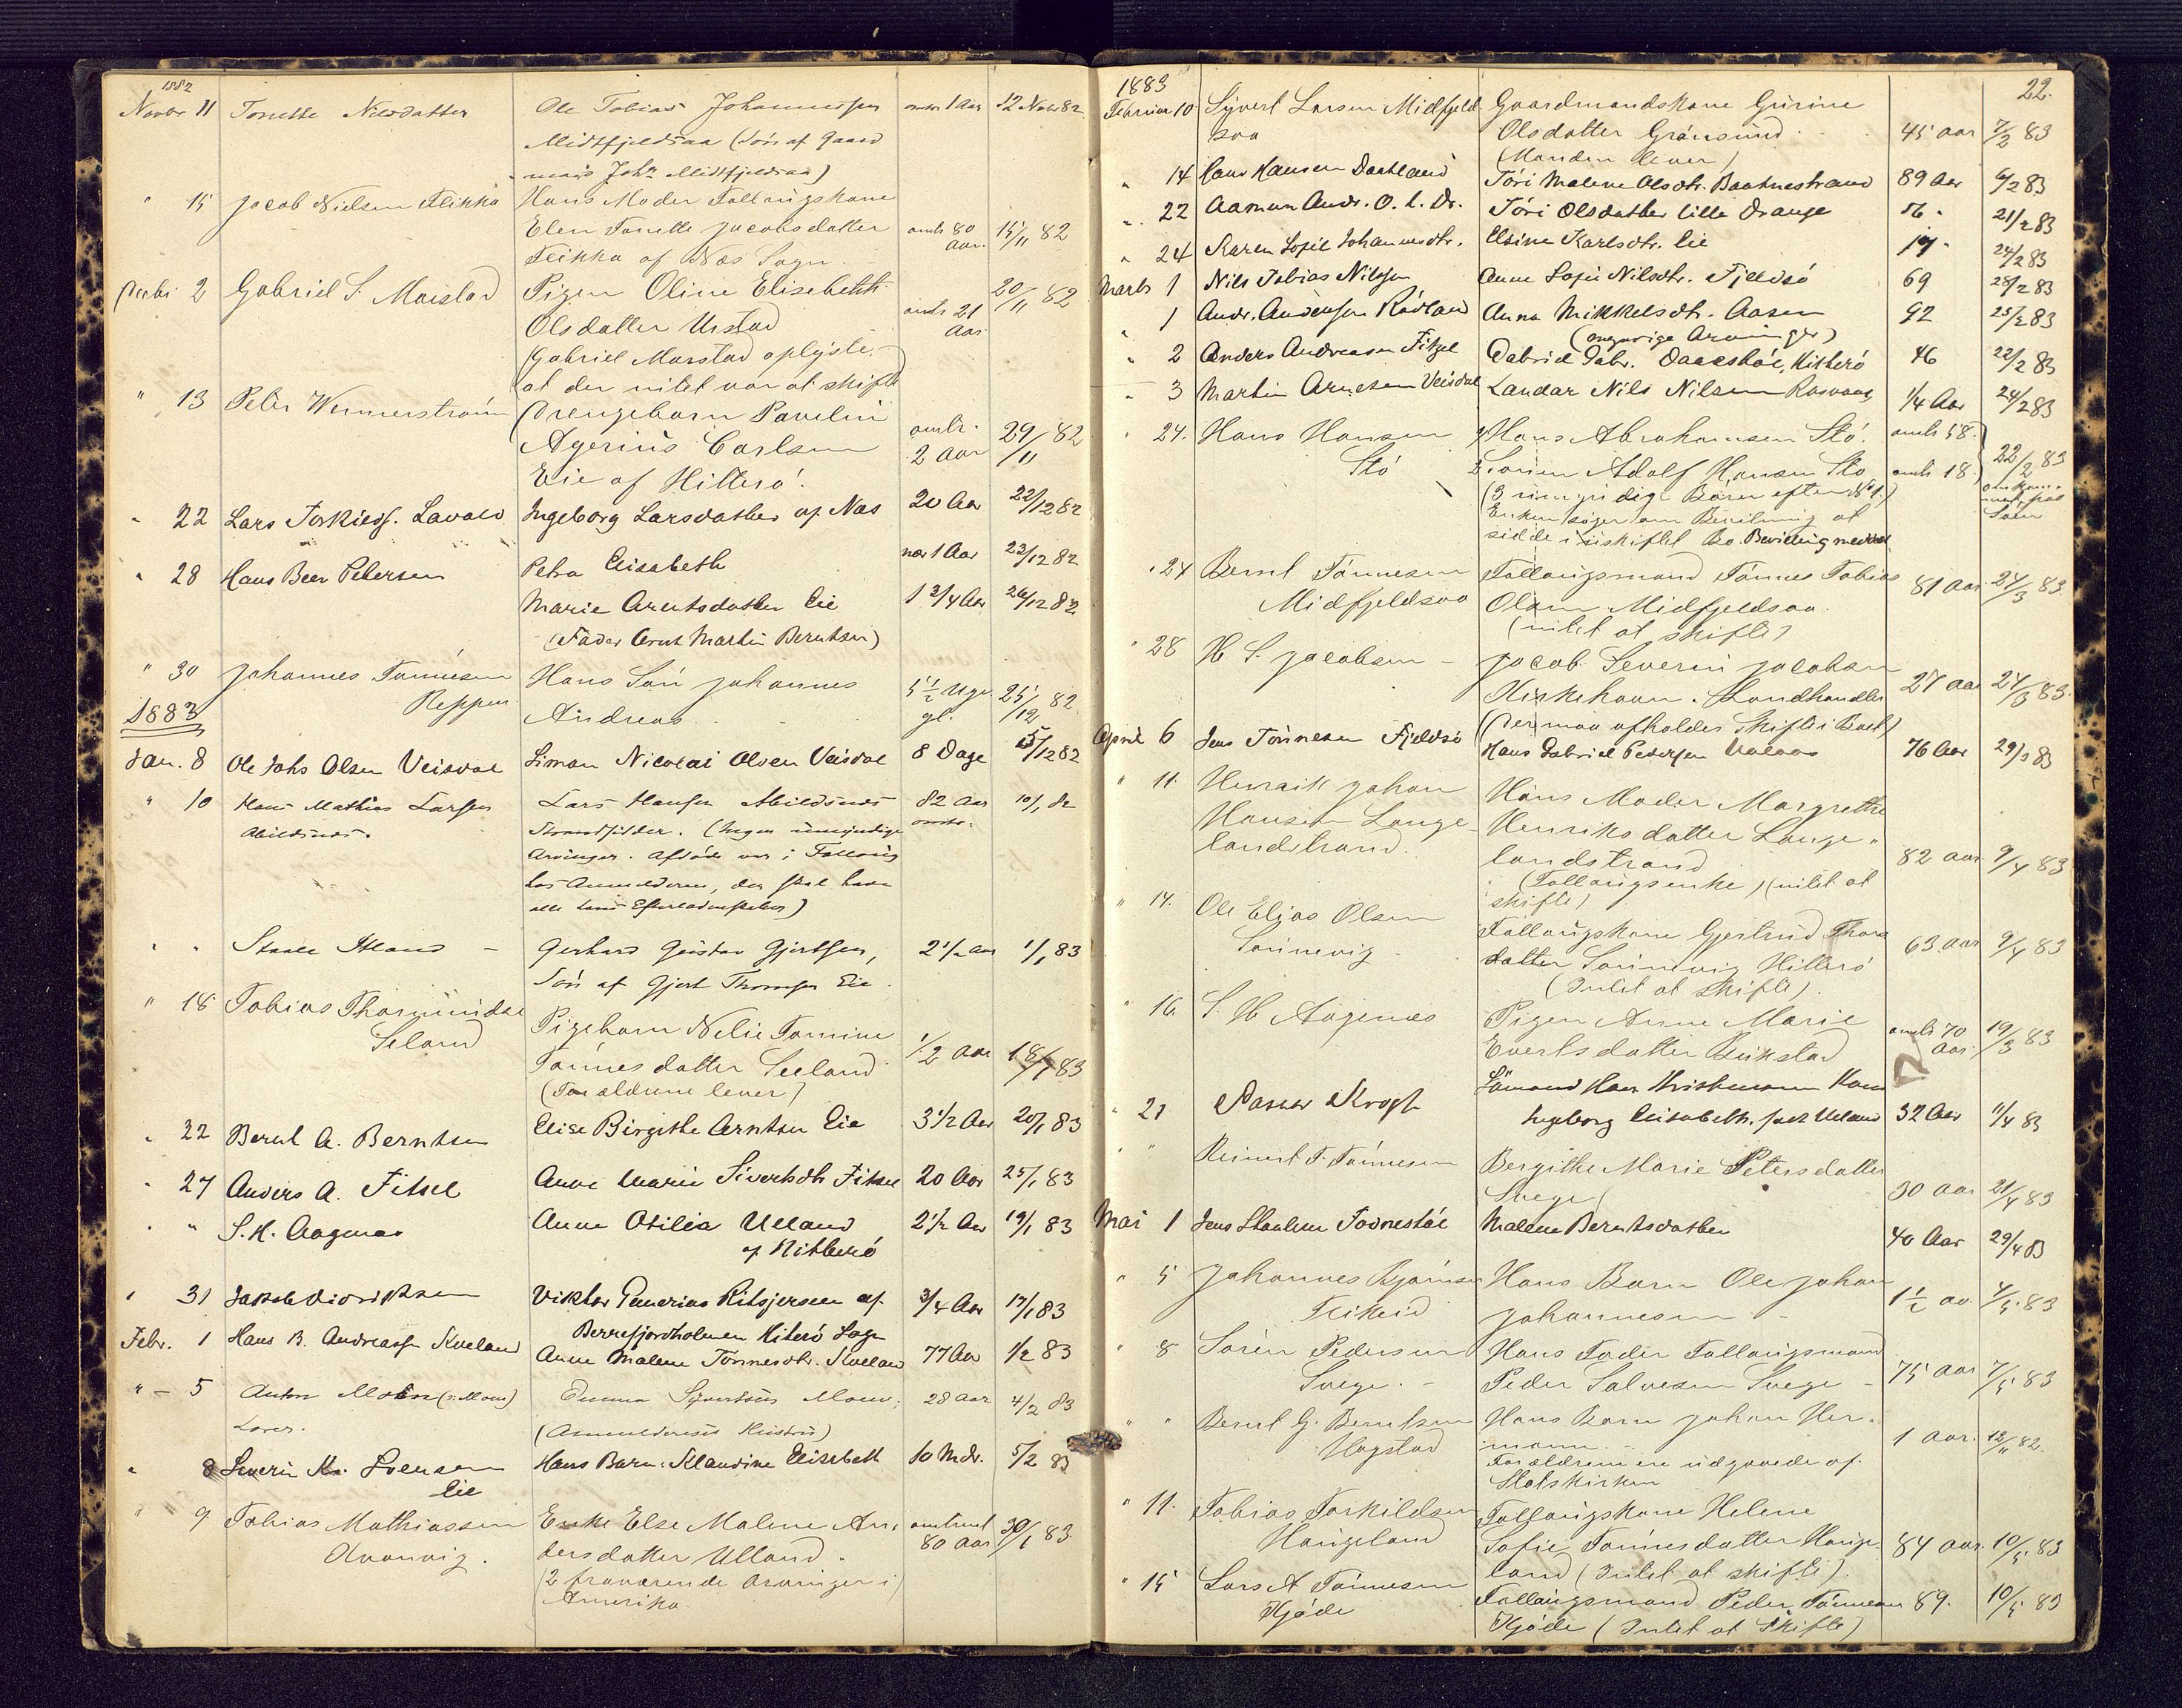 1882
Novbr 11 Tonette Nilsdatter Ole Tobias Johannessen omtr 1 Aar 12 Novbr 82
Midtfjeldsaa (Søn af Gaard
mand Johs Midtfjeldsaa)
" 15 Jacob Nielsen Flikka Hans Moder Follaugskone
Elen Tonette Jacobsdatter omtr 80 Aar. 15/11 82
Flikka af Næs Sogn.
Decbr 2 Gabriel S. Marstad Pigen Oline Elisebeth 20/11 82
Olsdatter Urstad omtr 21 Aar
(Gabriel Marstad oplyste
at der intet var at skifte)
" 13 Peter Wennerstrøm Drengebarn Paulin
Agerius Carlsen omtr. 2 Aar 29/11 82
Eie af Hitterø.
" 22 Lars Torkieds. Lavold Ingeborg Larsdatter af Næs 20 Aar 22/12 82
" 28 Hans Beer Petersen Petra Elisabeth nær 1 Aar 23/12 82
Marie Arentsdatter Eie 1 3/4 Aar 26/12 82
(Fader Arent Martin Berntsen)
" 30 Johannes Tønnesen Hans Søn Johannes 5 1/2 Uge 25/12 82
Reppen Andreas gl.
1883
Jan. 8 Ole Johs Olsen Veisdal Simon Nicolai Olsen Veisdal 8 Dage 5/12 82
" 10 Hans Mathias Larsen Lars Hansen Abildsnes 82 Aar 10/1 82
Abildsnes. (Ingen umyndige omtr.
Arvinger. Afdøde var i Follaug
hos Anmelderen, der skal have
alle hans Efterladenskaber)
" " Staale Ativand - Gerhard Gustav Gjertsen, 2 1/2 Aar 1/1 83
Søn af Gjert Thomsen Eie.
" 18 Tobias Thormundsen Pigebarn Nelie Tomine
Seland Tønnesdatter Seeland 1/2 Aar 18/1 83
(Forældrene lever)
" 22 Bernt A. Berntsen Elise Birgitte Arntsen Eie 3 1/2 Aar 20/1 83
" 27 Anders A. Fitsel Anne Marie Sivertsdtr Fitsel 20 Aar 25/1 83
" " S. H. Aagenæs Anne Otilia Ueland 2 1/2 Aar 19/1 83
af Hitterø
" 31 Jakob Didriksen Viktor Penerius Ritsjersen af 3/4 Aar 17/1 83
Berrefjordholmen Hiterø Sogn
Febr. 1 Hans B. Andreassen Kveland Anne Malene Tønnesdtr. Kvelan 77 Aar 1/2 83
" - 5 Anton Moen (o: Moen) Emma Syvertsen Moen; 28 Aar 4/2 83
(Anmelderens Hustru)
" 8 Severin M. Svensen Hans Barn: Klaudine Elisebeth 10 Mdr. 5/2 83
Eie
" 9 Tobias Mathiassen Enke Else Malene An- omtrent 30/1 83
Aavarvig. dersdatter Ulland. 80 Aar
(2 fraværende Arvinger i
Amerika.
1883 22.
Februar 10 Syvert Larsen Midfjeld- Gaardmandskone Gurine
saa Olsdatter Grønsund. 45 aar 7/2 83
(Manden lever)
" 14 Hans Hansen Daatland Tóri Malene Olsdtr. Baatnestrand 89 Aar 6/2 83
" 22 Aamun Andr. O. L. Dr. Tóri Olsdatter Lille Drange 56 " 21/2 83
" 24 Karen Sofie Johannesdtr. Elsine Karlsdtr. Eie 19 " 24/2 83
Marts 1 Nils Tobias Nilsen Anne Sofie Nilsdtr. Fjeldsø 69 28/2 83
" 1 Andr. Andersen Rødland Anna Mikkelsdt. Aasen 92 25/2 83
(myndige Arvinger)
" 2 Anders Andreasen Fitzel Gabriel Gabr. Daaestøl, Hitterø 46 22/2 83
" 3 Martin Arnesen Veisdal Landar Nils Nilsen Rasvaag 1/4 Aar 24/2 83
" 24. Hans Hansen 1 Hans Abrahamsen Stø. omtr 58.
Stø 2 Søren Adolf Hansen Stø omtr 18. 22/2 83
(3 umyndige Børn efter No 1.) omkom-
Enken søger om Bevilling at met paa
sidde i uskiftet Bo. Bevilling meddel Søen
" 24 Bernt Tønnesen Follaugsmand Tønnes Tobias
Midfjeldsaa Olsen Midfjeldsaa. 81 Aar 24/3 83
(intet at skifte)
" 28 H. S. Jacobsen - Jacob Severin Jacobsen
Kirkehavn. Landhandler 27 aar 24/3 83.
(Der maa afholdes Skifte i Boet)
April 6 Jens Tønnesen Fjeldsø Hans Gabriel Pedersen Valaas 76 Aar 29/3 83
" 11 Henrik Johan Hans Moder Margrethe
Hansen Lange- Henriksdatter Lange-
landstrand. landstrand 82 aar 9/4 83
(Follaugsenke) (intet at
skifte)
" 14. Ole Elias Olsen Follaugskone Gjertrud Thore
Sønnevig - datter Sønnevig Hitterø 63 Aar 9/4 83
(Intet at skifte).
" 16 S. H. Aagenæs Pigen Anne Marie
Evertsdatter Birkstad omtr 70 Aar. 19/3 83
Sømand Hans Kristensen Kone
" 21 Rasmus Krogh Ingeborg Elisabeth, født Ueland 32 Aar 11/4 83
" Reinert T. Tønnesen Bergitte Marie Petersdatter
Svege 30 aar 21/4 83
Mai 1 Jens Staalesen Todnestøl Malene Berntsdatter 40 Aar 29/4 83
" 5 Johannes Bjørnsen Hans Barn Ole Johan
Fikeid Johannesen - 1 1/2 aar 4/5 83
" 8 Søren Pedersen Hans Fader Follaugsmand
Svege. - Peder Salvesen Svege - 75 aar 7/5 83
" " Bernt G. Berntsen Hans Barn Johan Her-
Hogstad mann. - 1 Aar. 12/11 82.
Forældrene ere udgaaede af
Statskirken
" 11. Tobias Torkildsen Follaugskone Helene
Haugeland Sofie Tønnesdatter Hauge- 84 aar. 10/5 83
land (Intet at skifte).
" 15 Lars A Tønnesen Follaugsmand Peder Tønnesen 89. 10/5 83
Gjøde Gjøde (Intet at Skifte)